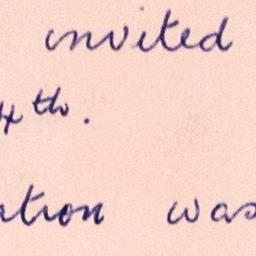 invited
4th.
ation was